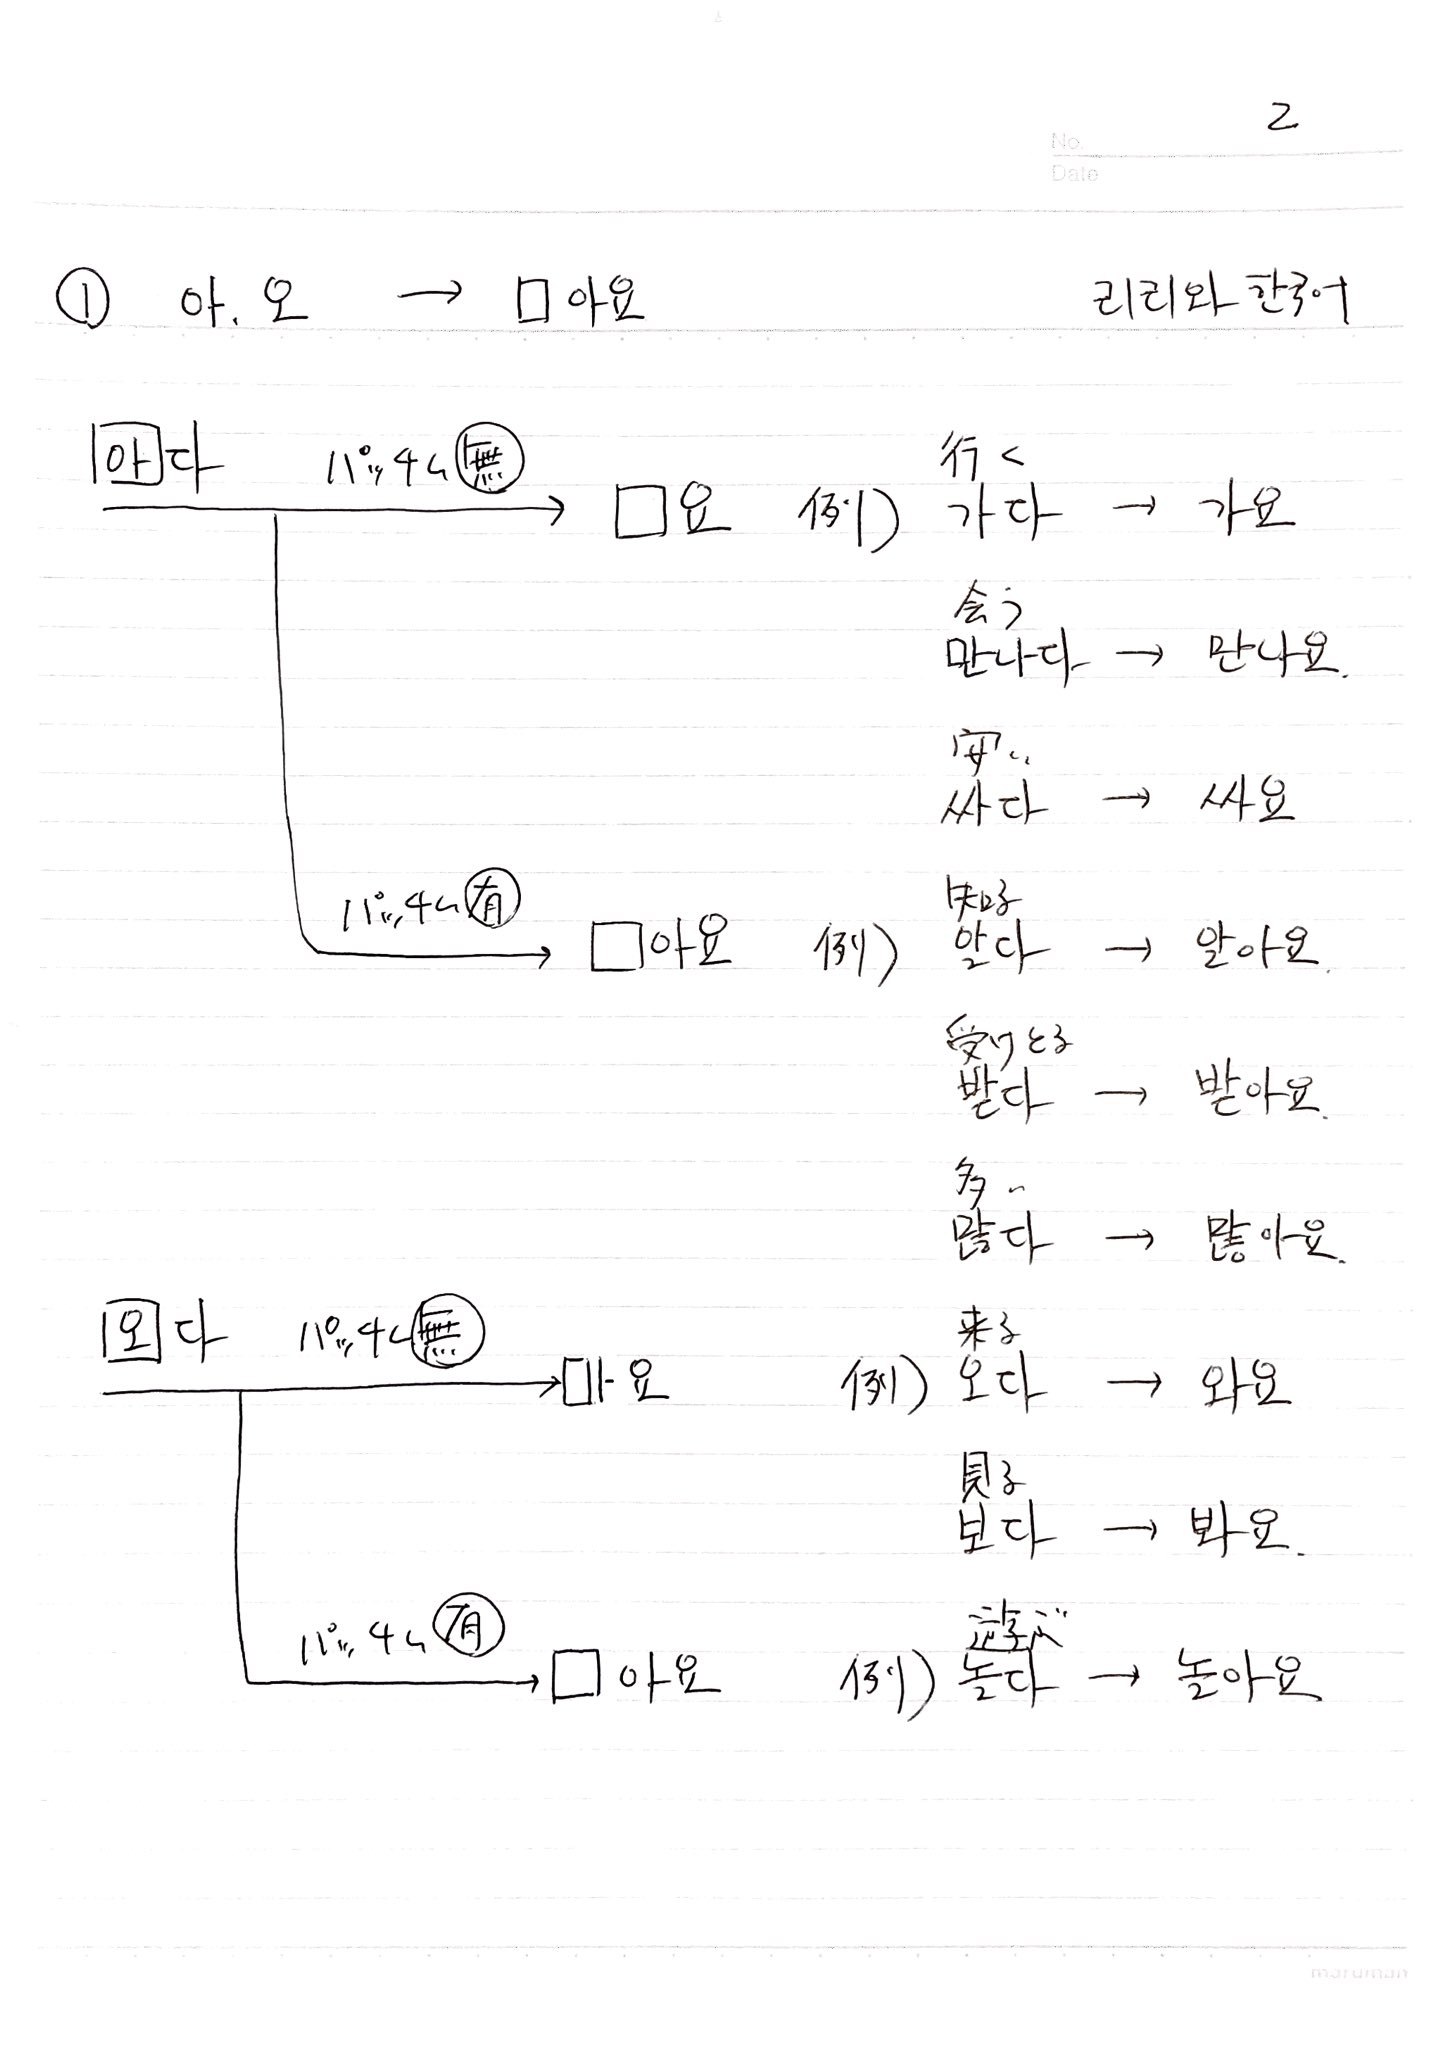 2
No.
Date
① 아. 오 → □아요 리리와 한국어
아다 パッチム無 → □요 例) 行く
가다 → 가요
会う
만나다 → 만나요.
安い
싸다 → 싸요
パッチム有 → □아요 例) 知る
알다 → 알아요.
受けとる
받다 → 받아요.
多い
많다 → 많아요.
오다 パッチム無 → □ㅏ요 例) 来る
오다 → 와요
見る
보다 → 봐요.
パッチム有 → □아요 例) 遊ぶ
놀다 → 놀아요.
maruman